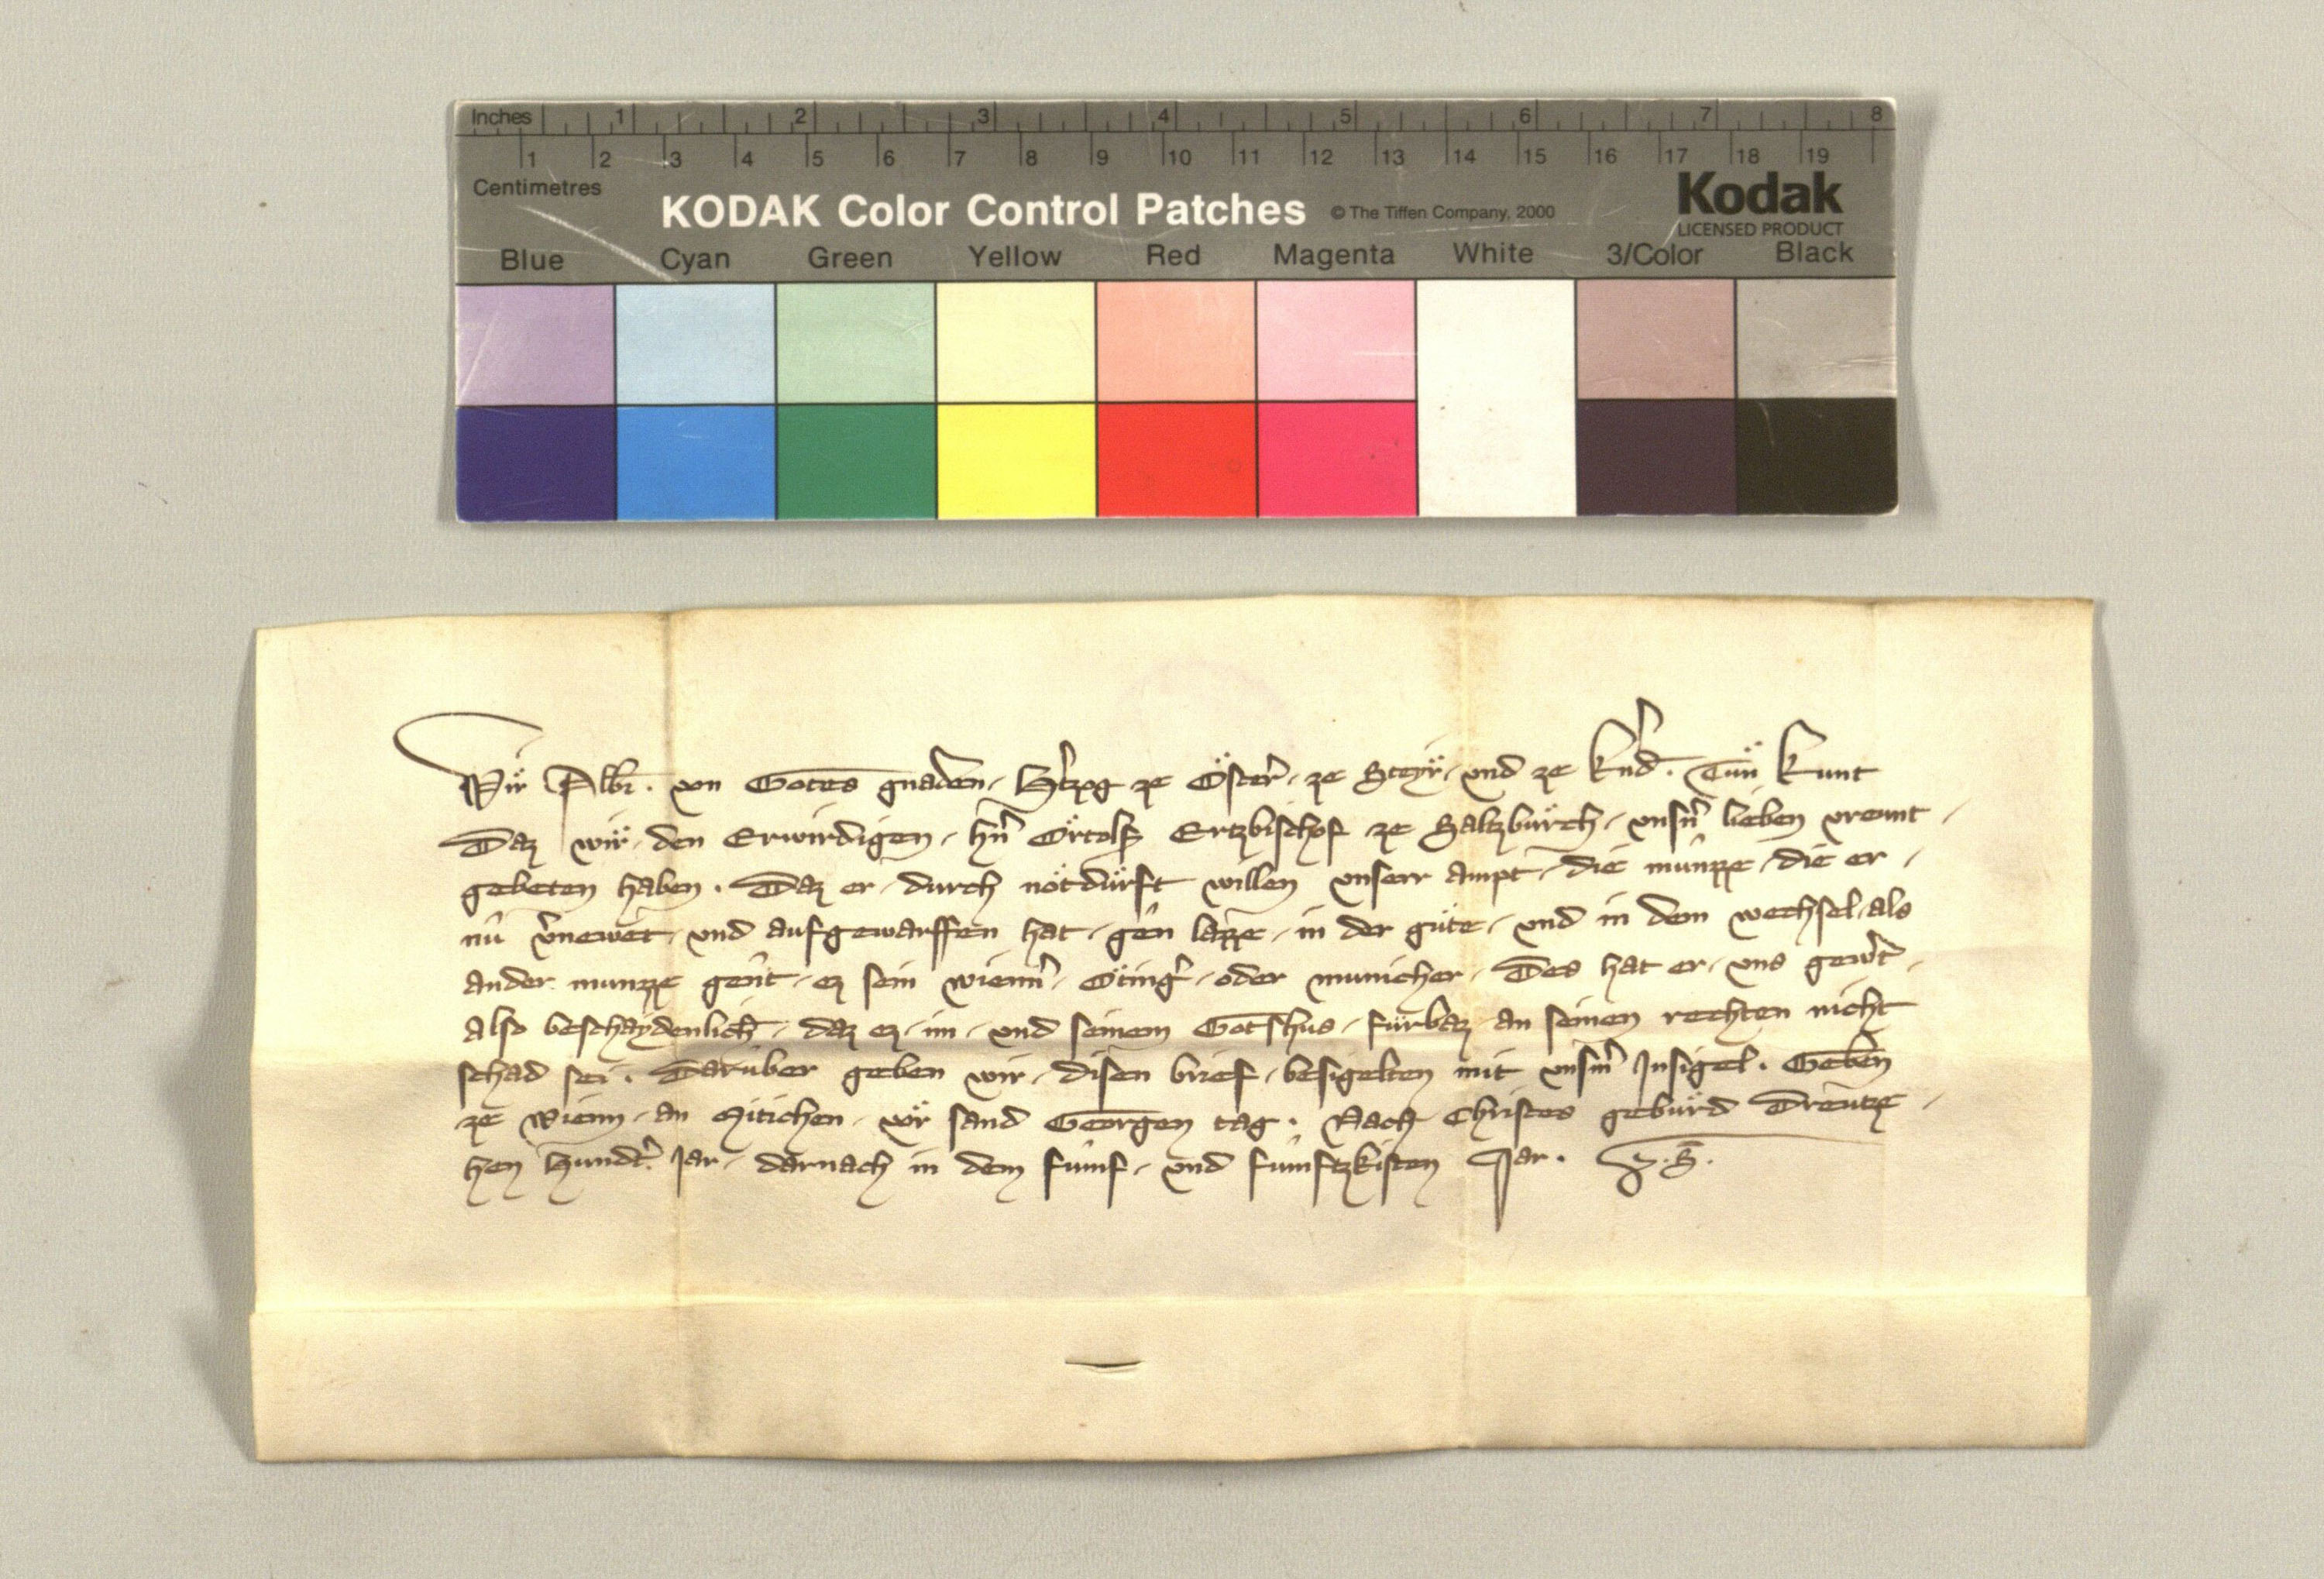 Inches 1 2 3 4 5 6 7 8
1 2 3 4 5 6 7 8 9 10 11 12 13 14 15 16 17 18 19
Centimetres
KODAK Color Control Patches © The Tiffen Company, 2000 Kodak
LICENSED PRODUCT
Blue Cyan Green Yellow Red Magenta White 3/Color Black
Wir Albr. von Gotes gnaden, Hᵉtzog ze Österꝛ, ze Steyr, vnd ze Kᵉnd. Tün kunt
Daz wir, den Erwirdigen, hn̄ Ortolf Ertzbischof ze Saltzburch, vnsn̄ lieben vreunt,
gebeten haben. Daz er, durch nötdürft willen vnserr ampt, die münzze, die er,
nü v̄newet, vnd aufgewarffen hat, gen lazze, in der güte, vnd in dem wechsel, als
ander munzze gent, ez sein wienn̄, Ötinḡ, oder municher, Des hat er, vns gew̄t,
also beschaydenlich, daz ez, im, vnd seinem Gotshus, fürbaz an seinen rechten nicht
schad sei. Darüber geben wir, disen brief, besigelten mit vnsm̄ Insigel. Geben
ze Wienn, an Mitichen, vor sand Georgen tag. Nach Christes gebürd Dreutze,
hen Hundt̄. Jar, darnach in dem fumf, vnd fumftzkisten Jar.